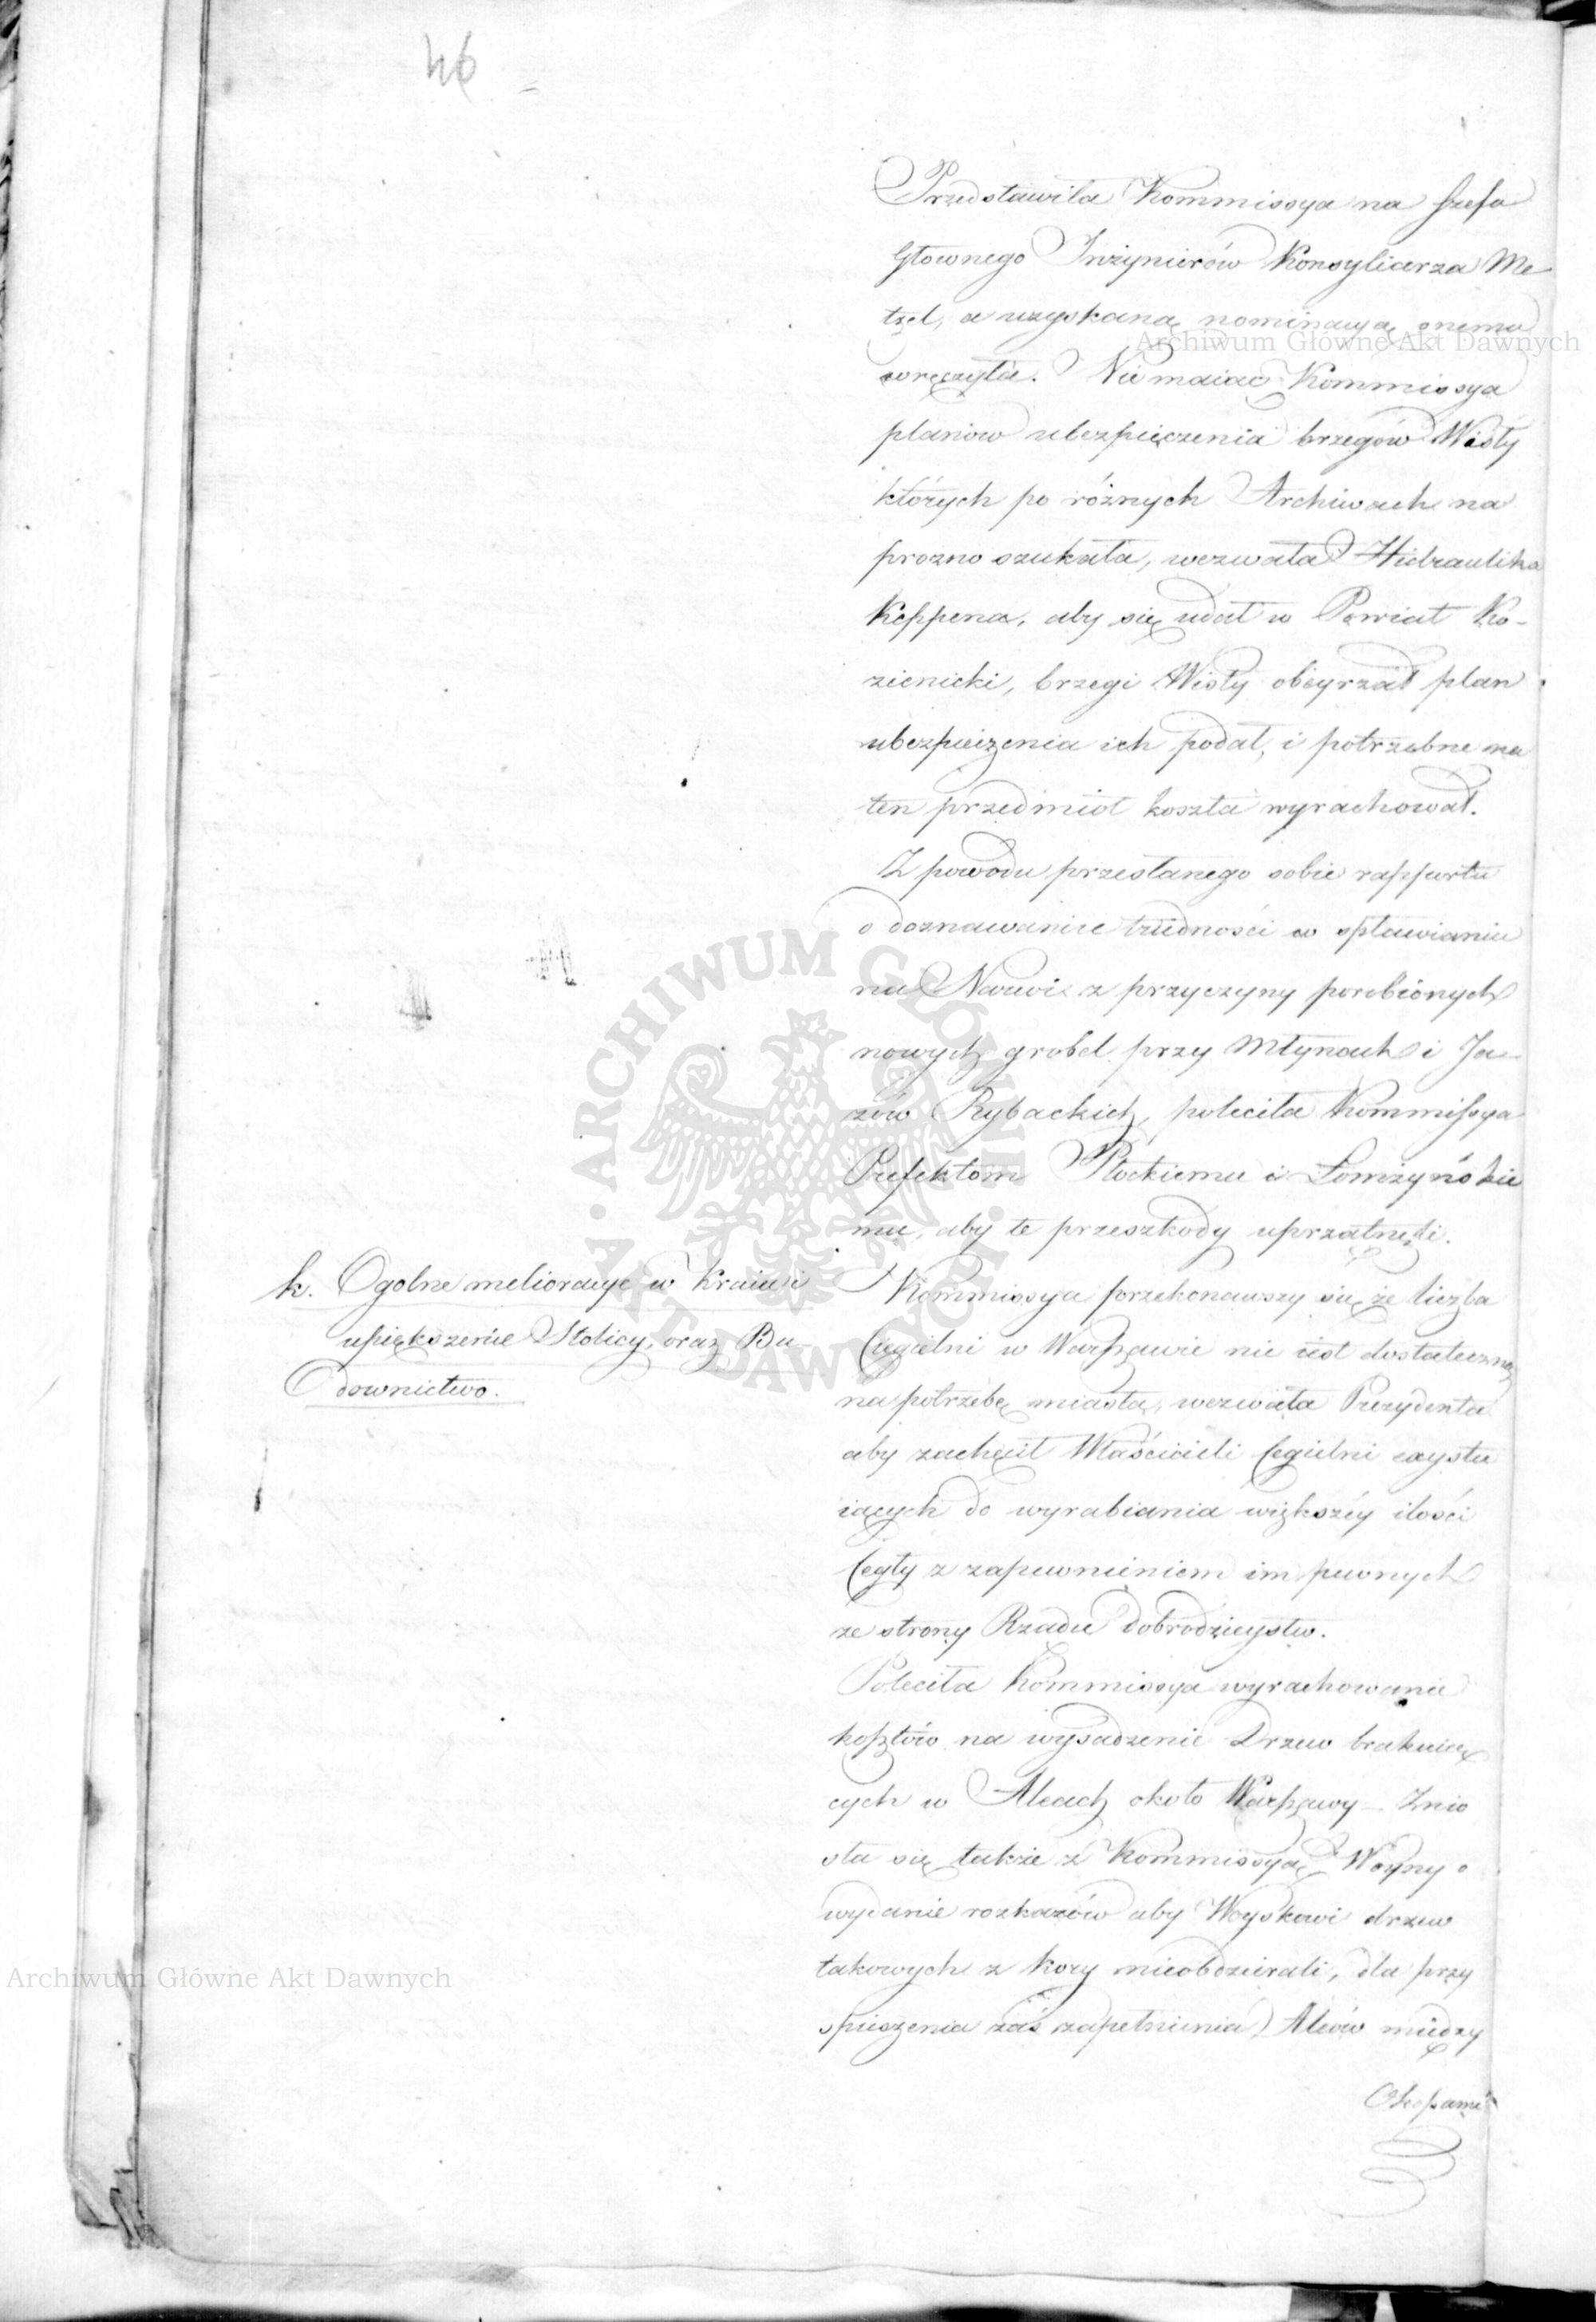 46
Przedstawiła Kommissya na Szefa
Głownego Inżynierów Konsyliarza Me
tzel, a uzyskaną nominacyą onemu
wręczyła. Nie maiąc Kommissya
planow ubezpieczenia brzegów Wisły
których po różnych Archiwach na
prozno szukała, wezwała Hidraulika
Keppena, aby się udał w Powiat Ko-
zienicki, brzegi Wisły obeyrzał plan
ubezpieczenia ich podał, i potrzebne na
ten przedmiot koszta wyrachował.
Z powodu przesłanego sobie rapportu
o doznawanie trudności w spławianiu
na Narwi z przyczyny porobionych
nowych grobel przy Młynach i Ja-
zów Rybackich, poleciła Kommissya
Prefektom Płockiemu i Łomżyńskie
mu, aby te przeszkody uprzątnęli.
k. Ogolne melioracye w Kraiu i
upiększenie Stolicy, oraz Bu-
downictwo.
Kommissya przekonawszy się że liczba
Cegielni w Warszawie nie iest dostateczną
na potrzebę miasta, wezwała Prezydenta
aby zachęcił Właścicieli Cegielni exystu
iących do wyrabiania większéy ilości
Cegły z zapewnieniem im pewnych
ze strony Rządu dobrodzieystw.
Poleciła Kommissya wyrachowanie
kosztów na wysadzenie Drzew brakuią
cych w Aleach około Warszawy - Znio
sła się także z Kommissyą Woyny o
wydanie rozkazów aby Woyskowi drzew
takowych z kory nieobdzierali, dla przy
spieszenia zaś zapełnienia Aleów między
Okopami
Archiwum Główne Akt Dawnych
Archiwum Główne Akt Dawnych
ARCHIWUM GŁÓWNE AKT DAWNYCH